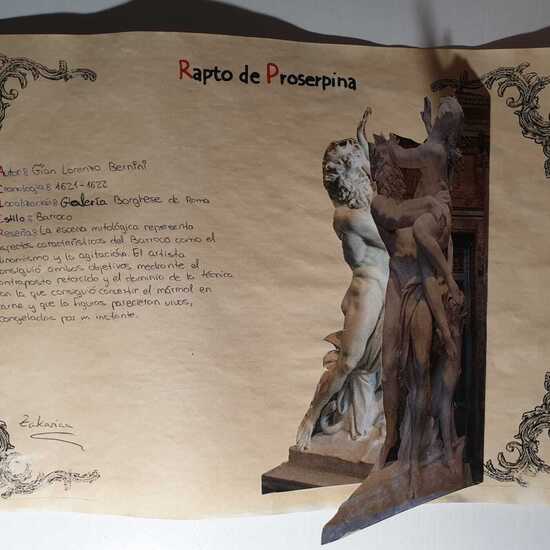 Rapto de Proserpina
Autor: Gian Lorenzo Bernini
Cronología: 1621-1622
Localización: Galería Borghese de Roma
Estilo: Barroco
Reseña: La escena mitológica representa
aspectos característicos del Barroco como el
dinamismo y la agitación. El artista
consiguió ambos objetivos mediante el
contraposto retorcido y el dominio de la técnica
con la que consiguió convertir el mármol en
carne y que la figuras pareciesen vivas,
congeladas por un instante.